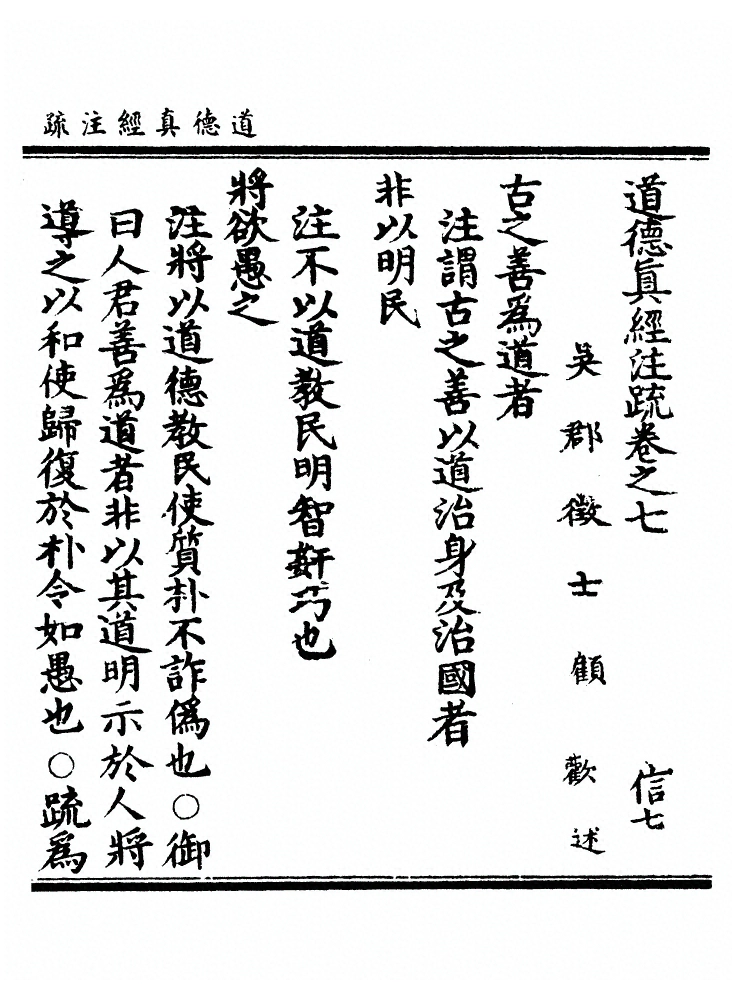 道德真經注疏
道德眞經注疏卷之七 信七
吳郡徵士顧歡述
古之善爲道者
注謂古之善以道治身及治國者
非以明民
注不以道教民明智姧巧也
將欲愚之
注將以道德教民使質朴不詐僞也○御
曰人君善爲道者非以其道明示於人將
導之以和使歸復於朴令如愚也○疏爲